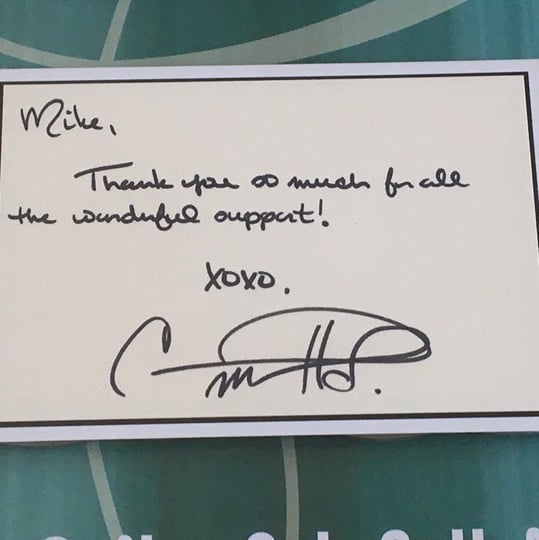 Mike,
Thank you so much for all
the wonderful support!
xoxo.